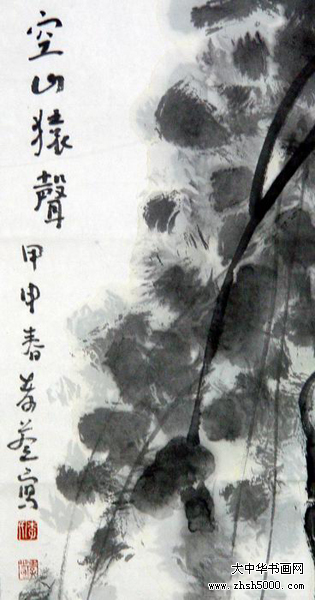 空山猿聲
甲申春
寫
大中华书画网
www.zhsh5000.com